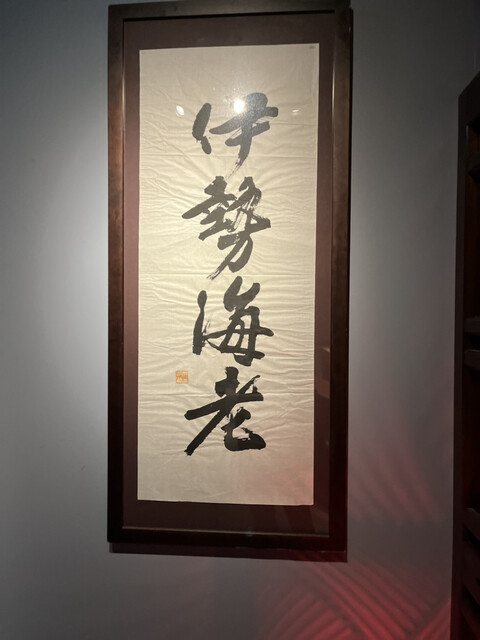 伊勢海老